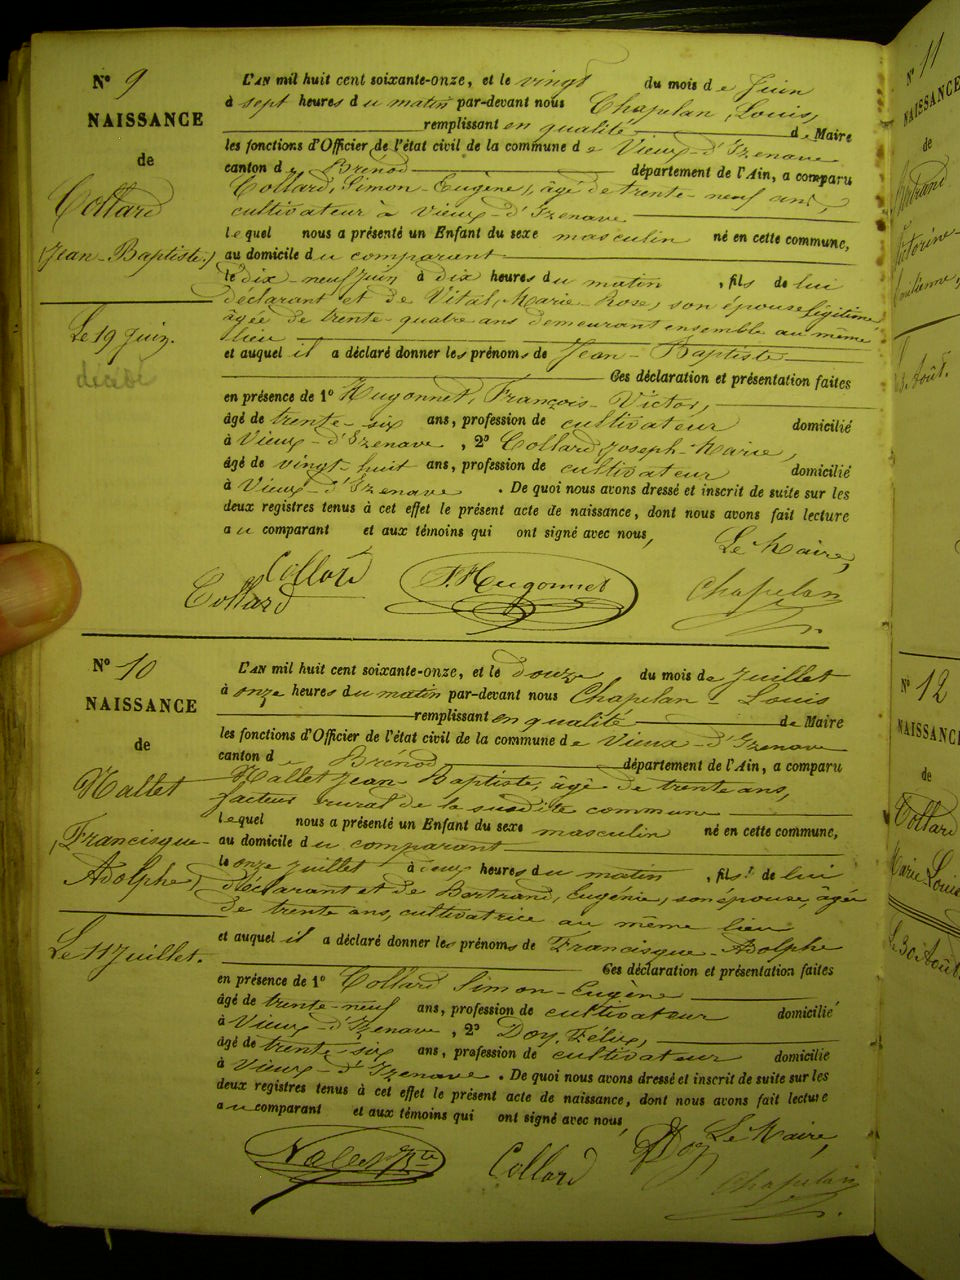 N° 9
NAISSANCE
de
Collard
(Jean-Baptiste.)
Le 19 Juin.
décédé
L'AN mil huit cent soixante-onze, et le vingt du mois de Juin
à sept heures du matin par-devant nous Chapelan, Louis,
remplissant en qualité de Maire
les fonctions d'Officier de l'état civil de la commune de Vieux-d'Izenave
canton de Brénod département de l'Ain, a comparu
Collard, Simon-Eugène, âgé de trente-neuf ans,
cultivateur à Vieux-d'Izenave
lequel nous a présenté un Enfant du sexe masculin né en cette commune,
au domicile du comparant
le dix-neuf Juin à dix heures du matin, fils de lui
déclarant et de Vital, Marie-Rose, son épouse légitime,
âgée de trente-quatre ans demeurant ensemble au même
lieu
et auquel il a déclaré donner les prénoms de Jean-Baptiste
Ces déclaration et présentation faites
en présence de 1° Hugonnet, François-Victor,
âgé de trente-six ans, profession de cultivateur domicilié
à Vieux-d'Izenave, 2° Collard Joseph-Marie,
âgé de vingt-huit ans, profession de cultivateur domicilié
à Vieux-d'Izenave. De quoi nous avons dressé et inscrit de suite sur les
deux registres tenus à cet effet le présent acte de naissance, dont nous avons fait lecture
au comparant et aux témoins qui ont signé avec nous,
Le Maire,
Collard
Collard
F. Hugonnet
Chapelan
N° 10
NAISSANCE
de
Nallet
(Francisque-
Adolphe)
Le 11 Juillet.
L'AN mil huit cent soixante-onze, et le douze du mois de Juillet
à onze heures du matin par-devant nous Chapelan-Louis
remplissant en qualité de Maire
les fonctions d'Officier de l'état civil de la commune de Vieux-d'Izenave
canton de Brénod département de l'Ain, a comparu
Nallet Jean-Baptiste, âgé de trente ans,
facteur rural de la susdite commune
lequel nous a présenté un Enfant du sexe masculin né en cette commune,
au domicile du comparant
le onze Juillet à deux heures du matin, fils de lui
déclarant et de Bertrand, Eugénie, son épouse, âgée
de trente ans, cultivatrice au même lieu
et auquel il a déclaré donner les prénoms de Francisque-Adolphe
Ces déclaration et présentation faites
en présence de 1° Collard Simon-Eugène
âgé de trente-neuf ans, profession de cultivateur domicilié
à Vieux-d'Izenave, 2° Doy, Félix,
âgé de trente-six ans, profession de cultivateur domicilié
à Vieux-d'Izenave. De quoi nous avons dressé et inscrit de suite sur les
deux registres tenus à cet effet le présent acte de naissance, dont nous avons fait lecture
au comparant et aux témoins qui ont signé avec nous,
Le Maire,
Collard
Doy
Chapelan
N° 11
NAISSANCE
de
N° 12
NAISSANCE
de
Collard
Marie Louis
Le 30 Août